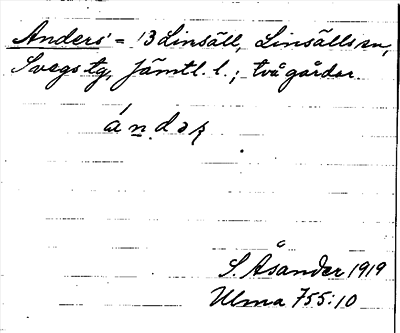 Anders' = 13 Linsäll, Linsälls sn,
Svegs tg, Jämtl. l.; två gårdar.
S. Åsander 1919
Ulma 755:10